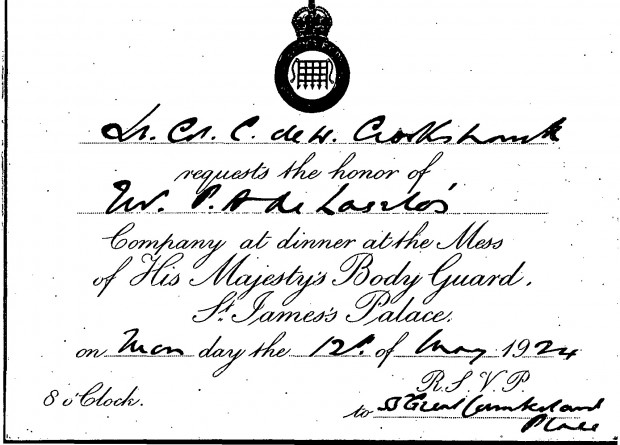 Lt. Col. C. de W. Crookshank
requests the honor of
Mr. P. A de Laszlo's
Company at dinner at the Mess
of His Majesty's Body Guard,
St. James's Palace.
on Mon day the 12th of May 1924
8 o'Clock.
R.S.V.P.
to 55 Great Cumberland
Place